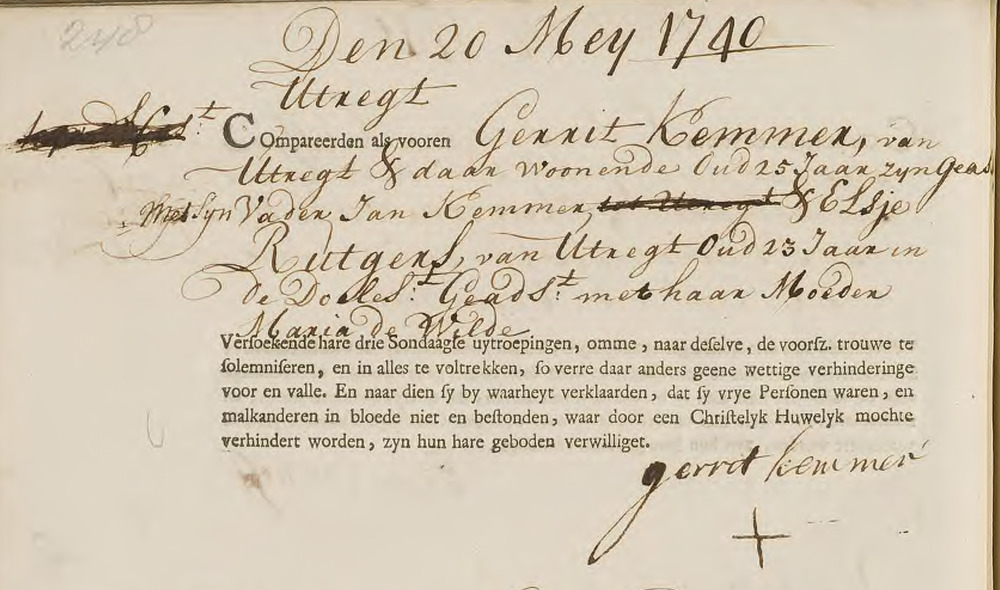 248
Den 20 Mey 1740
Utregt
Compareerden als vooren Gerrit Kemmer, van
Utregt & daar woonende Oud 25 Jaar zyn Geads
Met syn Vader Jan Kemmer, tot Utregt & Elsje
Rutgers, van Utregt Oud 23 Jaar in
de Doeles:t Geads:t met haar Moeder
Maria de Wilde
Verſoekende hare drie Sondaagſe uytroepingen, omme, naar deſelve, de voorſz. trouwe te
ſolemniſeren, en in alles te voltrekken, ſo verre daar anders geene wettige verhinderinge
voor en valle. En naar dien ſy by waarheyt verklaarden, dat ſy vrye Perſonen waren, en
malkanderen in bloede niet en beſtonden, waar door een Chriſtelyk Huwelyk mochte
verhindert worden, zyn hun hare geboden verwilliget.
gerret kemmer